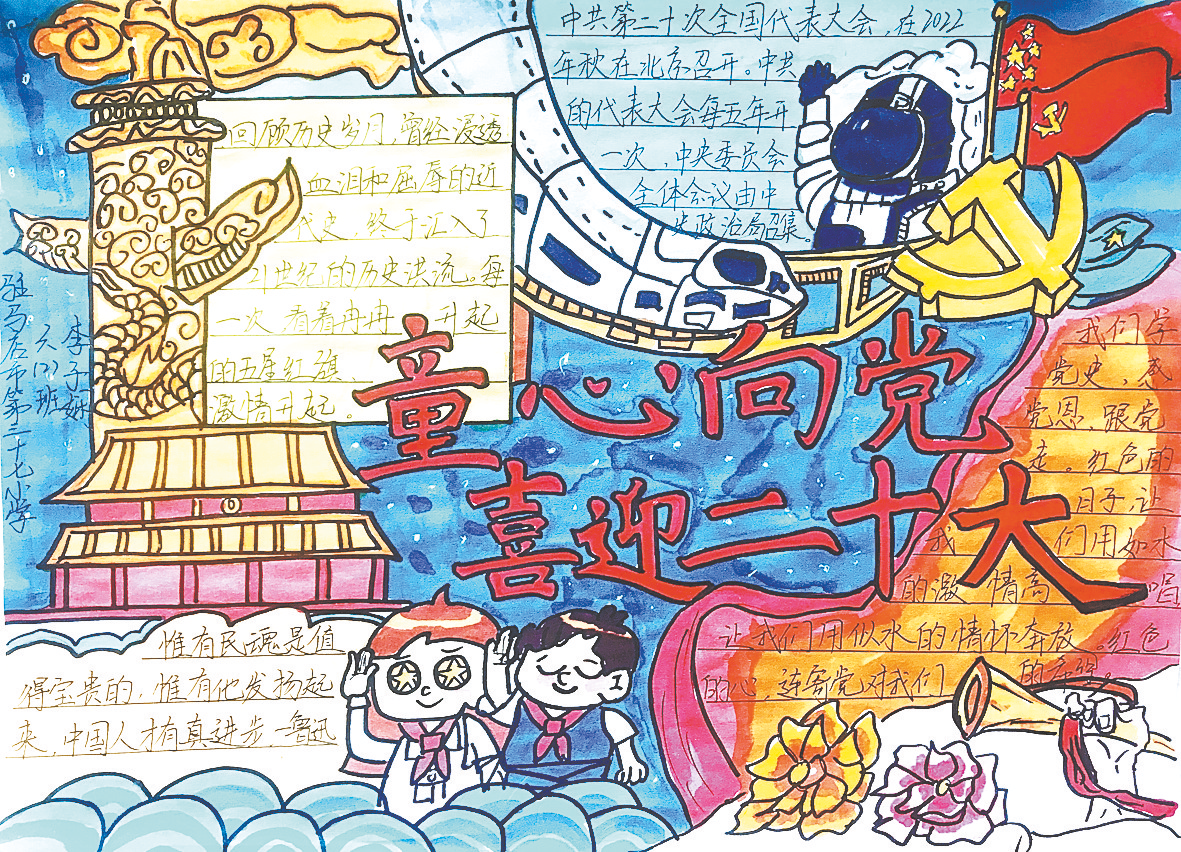 中共第二十次全国代表大会，在2022
年秋在北京召开。中共
的代表大会每五年开
一次，中央委员会
全体会议由中
央政治局召集。
回顾历史岁月，曾经浸透
血泪和屈辱的近
代史，终于汇入了
21世纪的历史洪流。每
一次看着冉冉升起
的五星红旗、
激情升起。
驻马店市第三十七小学
六(2)班
李子
童心向党
喜迎二十大
我们学
党史，感
党恩，跟党
走。红色的
日子，让
我们用如水
的激情高唱
让我们用似水的情怀奔放。红色
的心，连寄党对我们的
惟有民魂是值
得宝贵的，惟有他发扬起
来，中国人才有真进步。—鲁迅